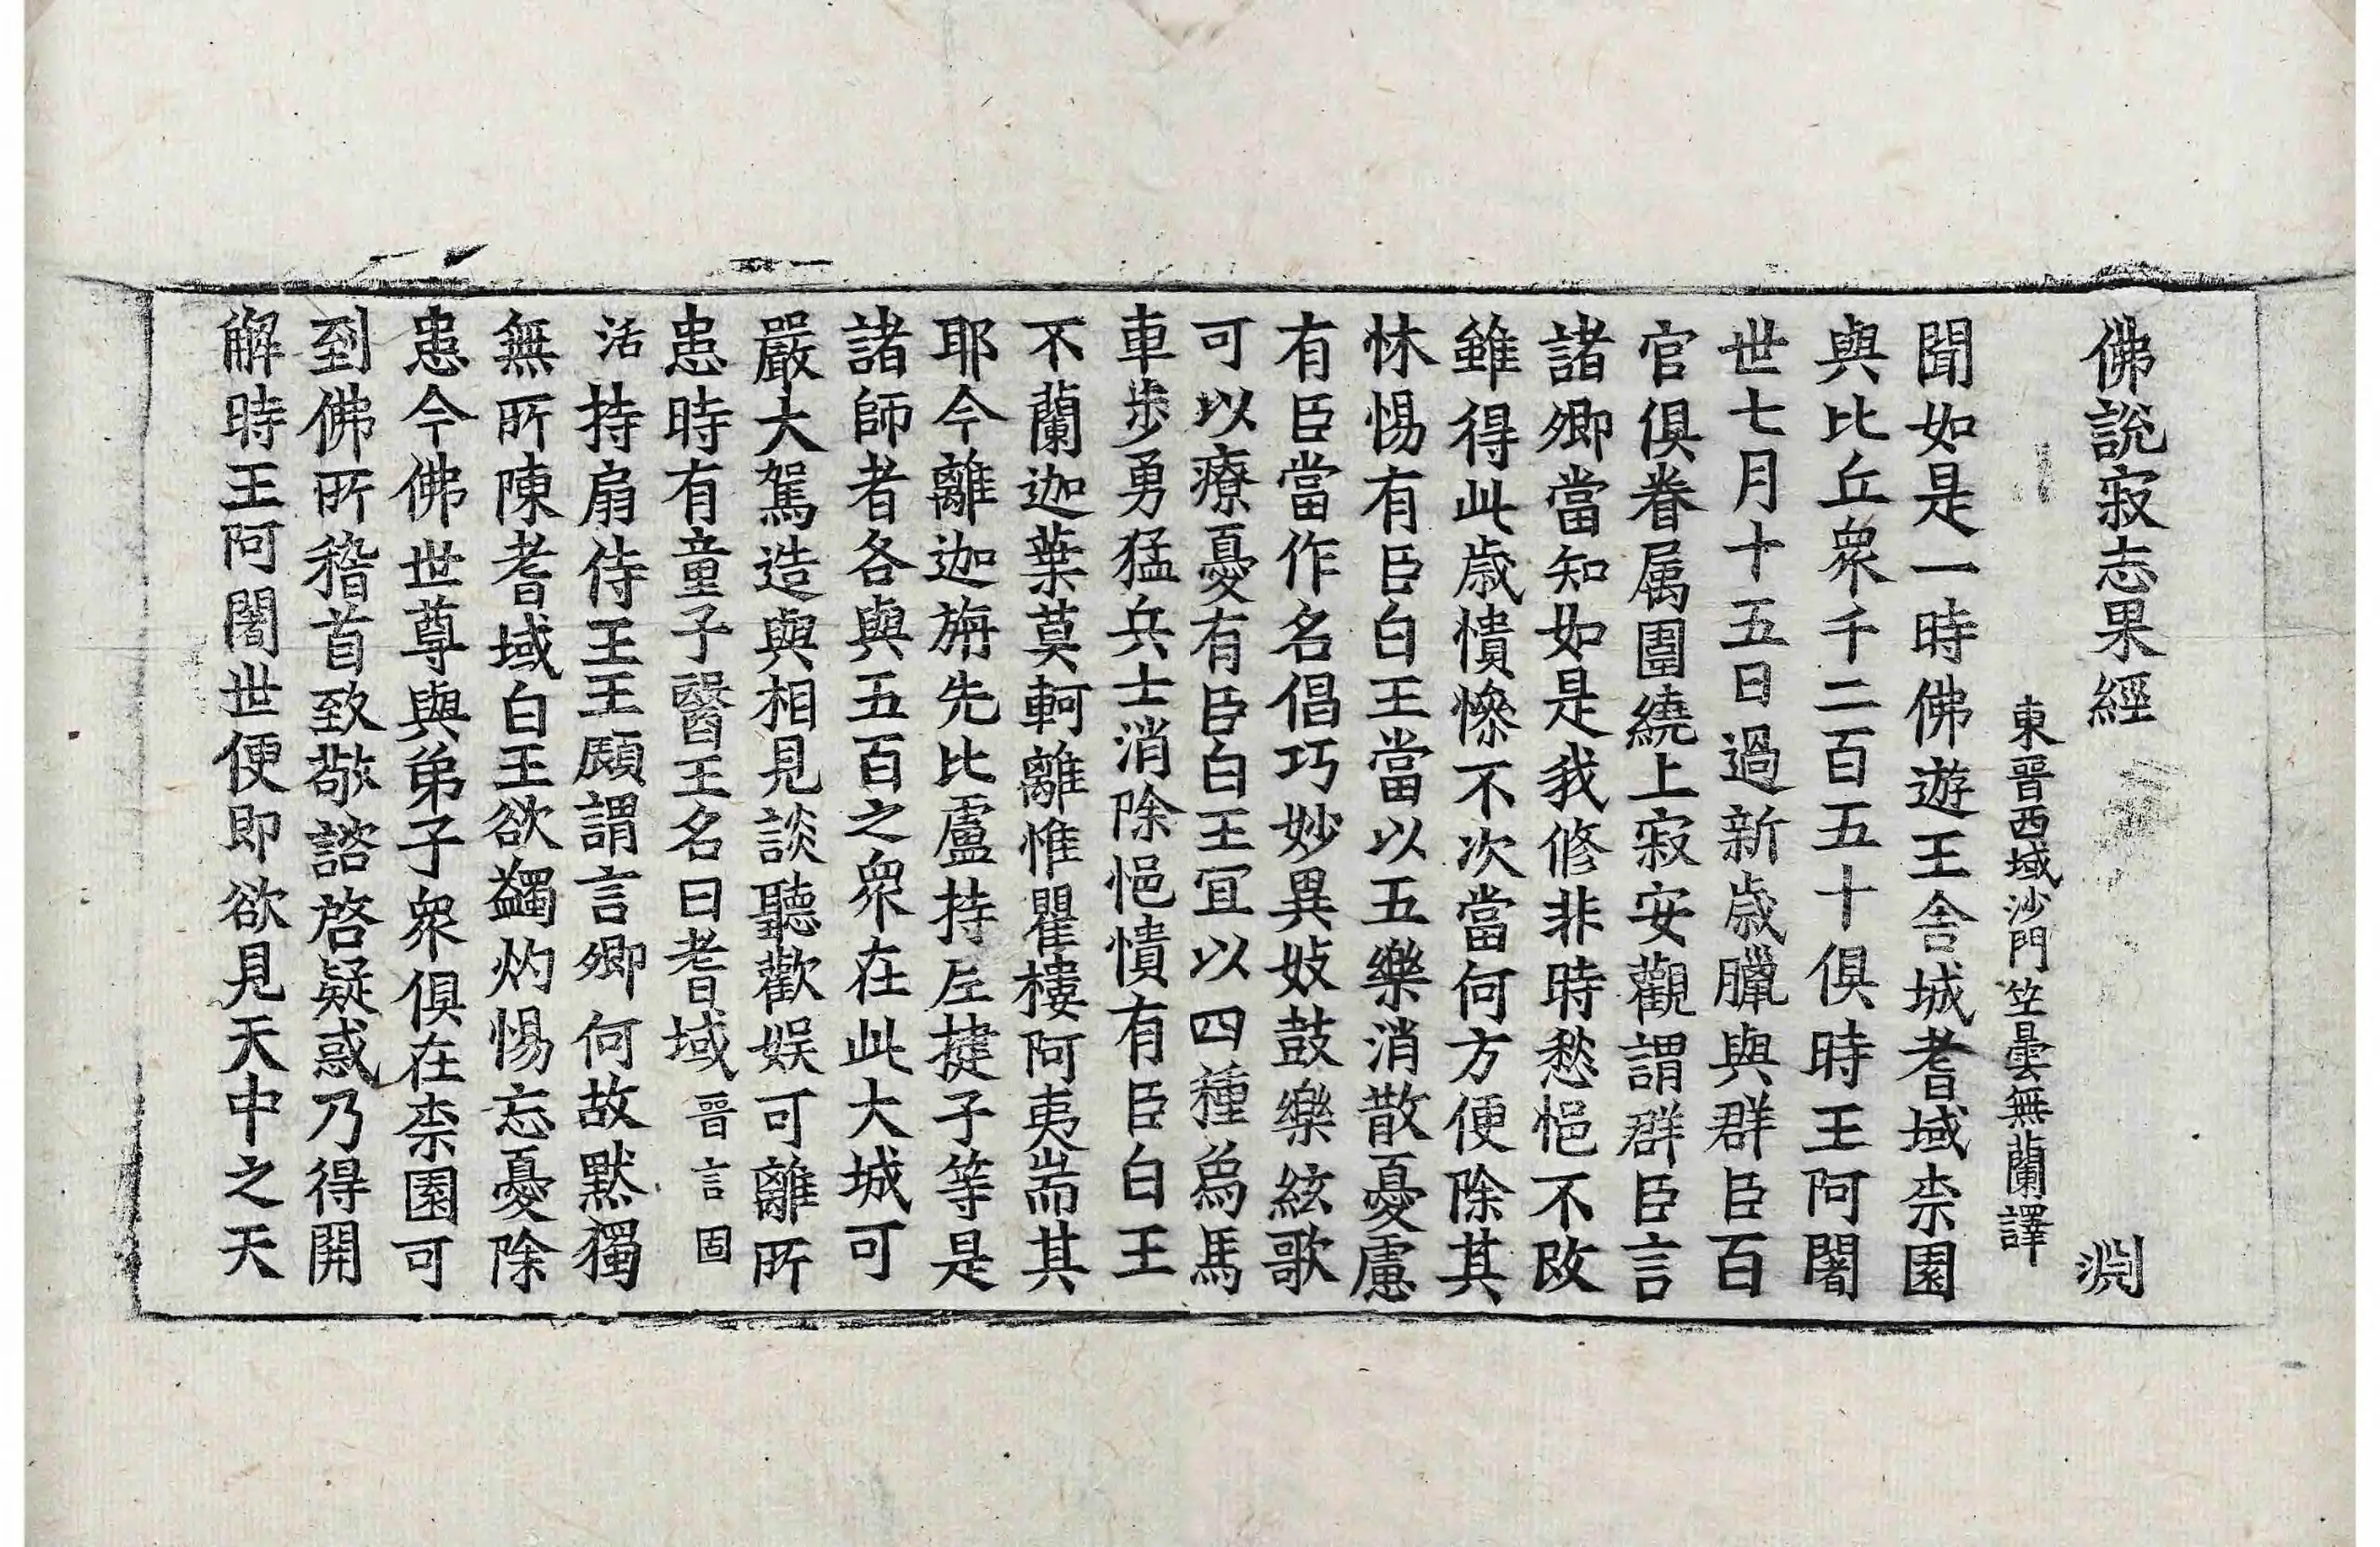 佛說寂志果經 淵
東晉西域沙門竺曇無蘭譯
聞如是一時佛遊王舍城耆域柰園
與比丘衆千二百五十俱時王阿闍
世七月十五日過新歲臘與群臣百
官俱眷属圍繞上寂安觀謂群臣言
諸卿當知如是我修非時愁悒不改
雖得此歲憒慘不次當何方便除其
怵惕有臣白王當以五樂消散憂慮
有臣當作名倡巧妙異妓鼓樂絃歌
可以療憂有臣白王冝以四種爲馬
車步勇猛兵士消除悒憒有臣白王
不蘭迦葉莫軻離惟瞿樓阿夷耑其
耶今離迦旃先比盧持左揵子等是
諸師者各與五百之衆在此大城可
嚴大駕造與相見談聽歡娛可離所
患時有童子醫王名曰耆域晉言固
活持扇侍王王顧謂言卿何故默獨
無所陳耆域白王欲蠲灼惕忘憂除
患今佛世尊與弟子衆俱在柰園可
到佛所稽首致敬諮啓疑惑乃得開
解時王阿闍世便即欲見天中之天